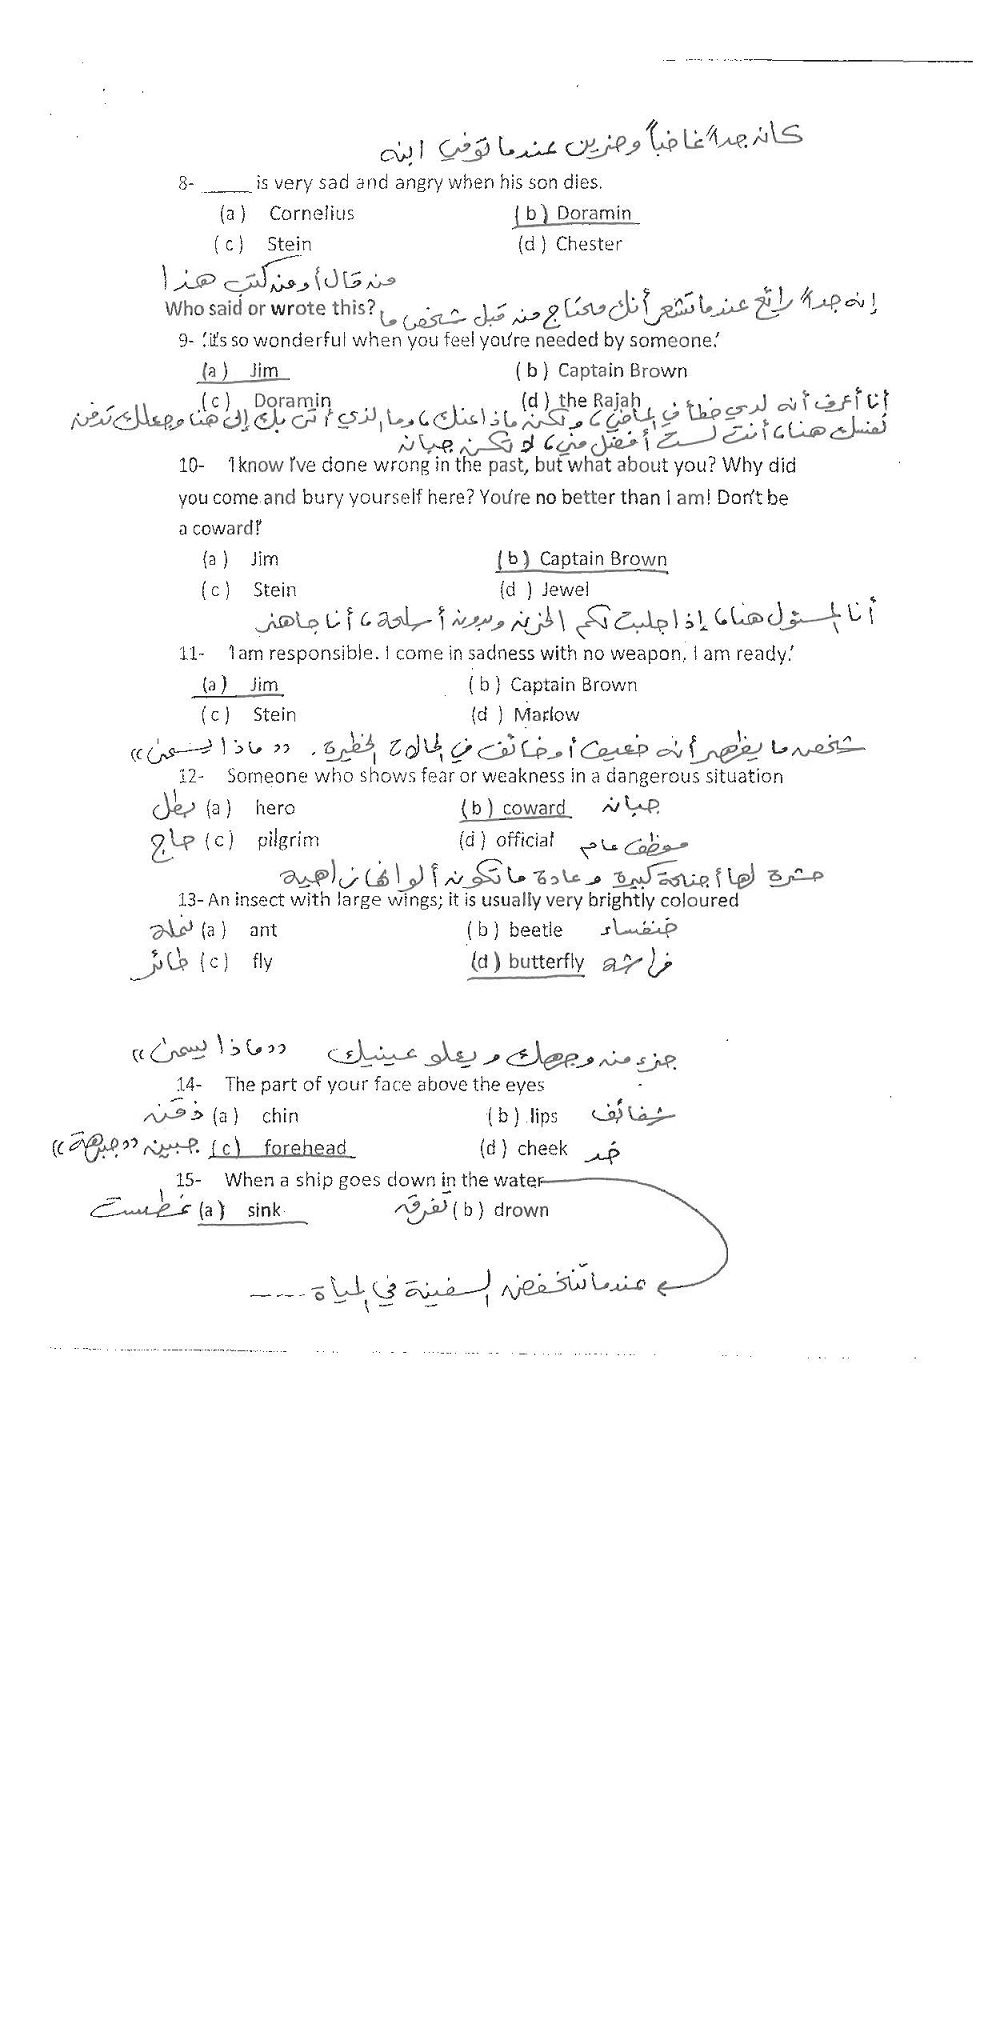 كان جداً غاضباً وحزين عندما توفي ابنه
8- ____ is very sad and angry when his son dies.
(a) Cornelius (b) Doramin
(c) Stein (d) Chester
من قال أو من كتب هذا
Who said or wrote this? إنه جداً رائع عندما تشعر أنك محتاج من قبل شخص ما
9- 'it's so wonderful when you feel you're needed by someone.'
(a) Jim (b) Captain Brown
(c) Doramin (d) the Rajah
أنا أعرف أنه لدي خطأ في الماضي، ولكن ماذا عنك، وما الذي أتى بك إلى هنا وجعلك تدفن
نفسك هنا، أنت لست أفضل مني، لا تكن جبان
10- 'I know I've done wrong in the past, but what about you? Why did
you come and bury yourself here? You're no better than I am! Don't be
a coward!'
(a) Jim (b) Captain Brown
(c) Stein (d) Jewel
أنا المسئول هنا، إذا جلبت لكم الحزن وبدون أسلحة، أنا جاهز
11- 'I am responsible. I come in sadness with no weapon. I am ready.'
(a) Jim (b) Captain Brown
(c) Stein (d) Marlow
شخص ما يظهر أنه ضعيف أو خائف في الحالة الخطيرة. ((ماذا يسمى))
12- Someone who shows fear or weakness in a dangerous situation
بطل (a) hero (b) coward جبان
حاج (c) pilgrim (d) official موظف عام
حشرة لها أجنحة كبيرة وعادة ما تكون ألوانها زاهية
13- An insect with large wings; it is usually very brightly coloured
نملة (a) ant (b) beetle خنفساء
طائر (c) fly (d) butterfly فراشة
جزء من وجهك ويعلو عينيك ((ماذا يسمى))
14- The part of your face above the eyes
ذقن (a) chin (b) lips شفائف
جبين ((جبهة)) (c) forehead (d) cheek خد
15- When a ship goes down in the water
غطست (a) sink تغرق (b) drown
عندما تنخفض السفينة في المياة ----